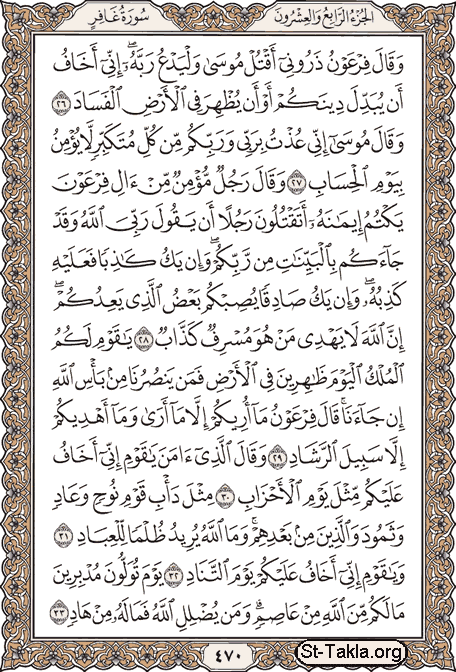 الجزء الرابع والعشرون سورة غافر
وَقَالَ فِرْعَوْنُ ذَرُونِىٓ أَقْتُلْ مُوسَىٰ وَلْيَدْعُ رَبَّهُۥٓ ۖ إِنِّىٓ أَخَافُ
أَن يُبَدِّلَ دِينَكُمْ أَوْ أَن يُظْهِرَ فِى ٱلْأَرْضِ ٱلْفَسَادَ ٢٦
وَقَالَ مُوسَىٰٓ إِنِّى عُذْتُ بِرَبِّى وَرَبِّكُم مِّن كُلِّ مُتَكَبِّرٍ لَّا يُؤْمِنُ
بِيَوْمِ ٱلْحِسَابِ ٢٧ وَقَالَ رَجُلٌ مُّؤْمِنٌ مِّنْ ءَالِ فِرْعَوْنَ
يَكْتُمُ إِيمَٰنَهُۥٓ أَتَقْتُلُونَ رَجُلًا أَن يَقُولَ رَبِّىَ ٱللَّهُ وَقَدْ
جَآءَكُم بِٱلْبَيِّنَٰتِ مِن رَّبِّكُمْ ۖ وَإِن يَكُ كَٰذِبًا فَعَلَيْهِ
كَذِبُهُۥ ۖ وَإِن يَكُ صَادِقًا يُصِبْكُم بَعْضُ ٱلَّذِى يَعِدُكُمْ ۖ
إِنَّ ٱللَّهَ لَا يَهْدِى مَنْ هُوَ مُسْرِفٌ كَذَّابٌ ٢٨ يَٰقَوْمِ لَكُمُ
ٱلْمُلْكُ ٱلْيَوْمَ ظَٰهِرِينَ فِى ٱلْأَرْضِ فَمَن يَنصُرُنَا مِنۢ بَأْسِ ٱللَّهِ
إِن جَآءَنَا ۚ قَالَ فِرْعَوْنُ مَآ أُرِيكُمْ إِلَّا مَآ أَرَىٰ وَمَآ أَهْدِيكُمْ
إِلَّا سَبِيلَ ٱلرَّشَادِ ٢٩ وَقَالَ ٱلَّذِىٓ ءَامَنَ يَٰقَوْمِ إِنِّىٓ أَخَافُ
عَلَيْكُم مِّثْلَ يَوْمِ ٱلْأَحْزَابِ ٣٠ مِثْلَ دَأْبِ قَوْمِ نُوحٍ وَعَادٍ
وَثَمُودَ وَٱلَّذِينَ مِنۢ بَعْدِهِمْ ۚ وَمَا ٱللَّهُ يُرِيدُ ظُلْمًا لِّلْعِبَادِ ٣١
وَيَٰقَوْمِ إِنِّىٓ أَخَافُ عَلَيْكُمْ يَوْمَ ٱلتَّنَادِ ٣٢ يَوْمَ تُوَلُّونَ مُدْبِرِينَ
مَا لَكُم مِّنَ ٱللَّهِ مِنْ عَاصِمٍ ۗ وَمَن يُضْلِلِ ٱللَّهُ فَمَا لَهُۥ مِنْ هَادٍ ٣٣
٤٧٠
St-Takla.org